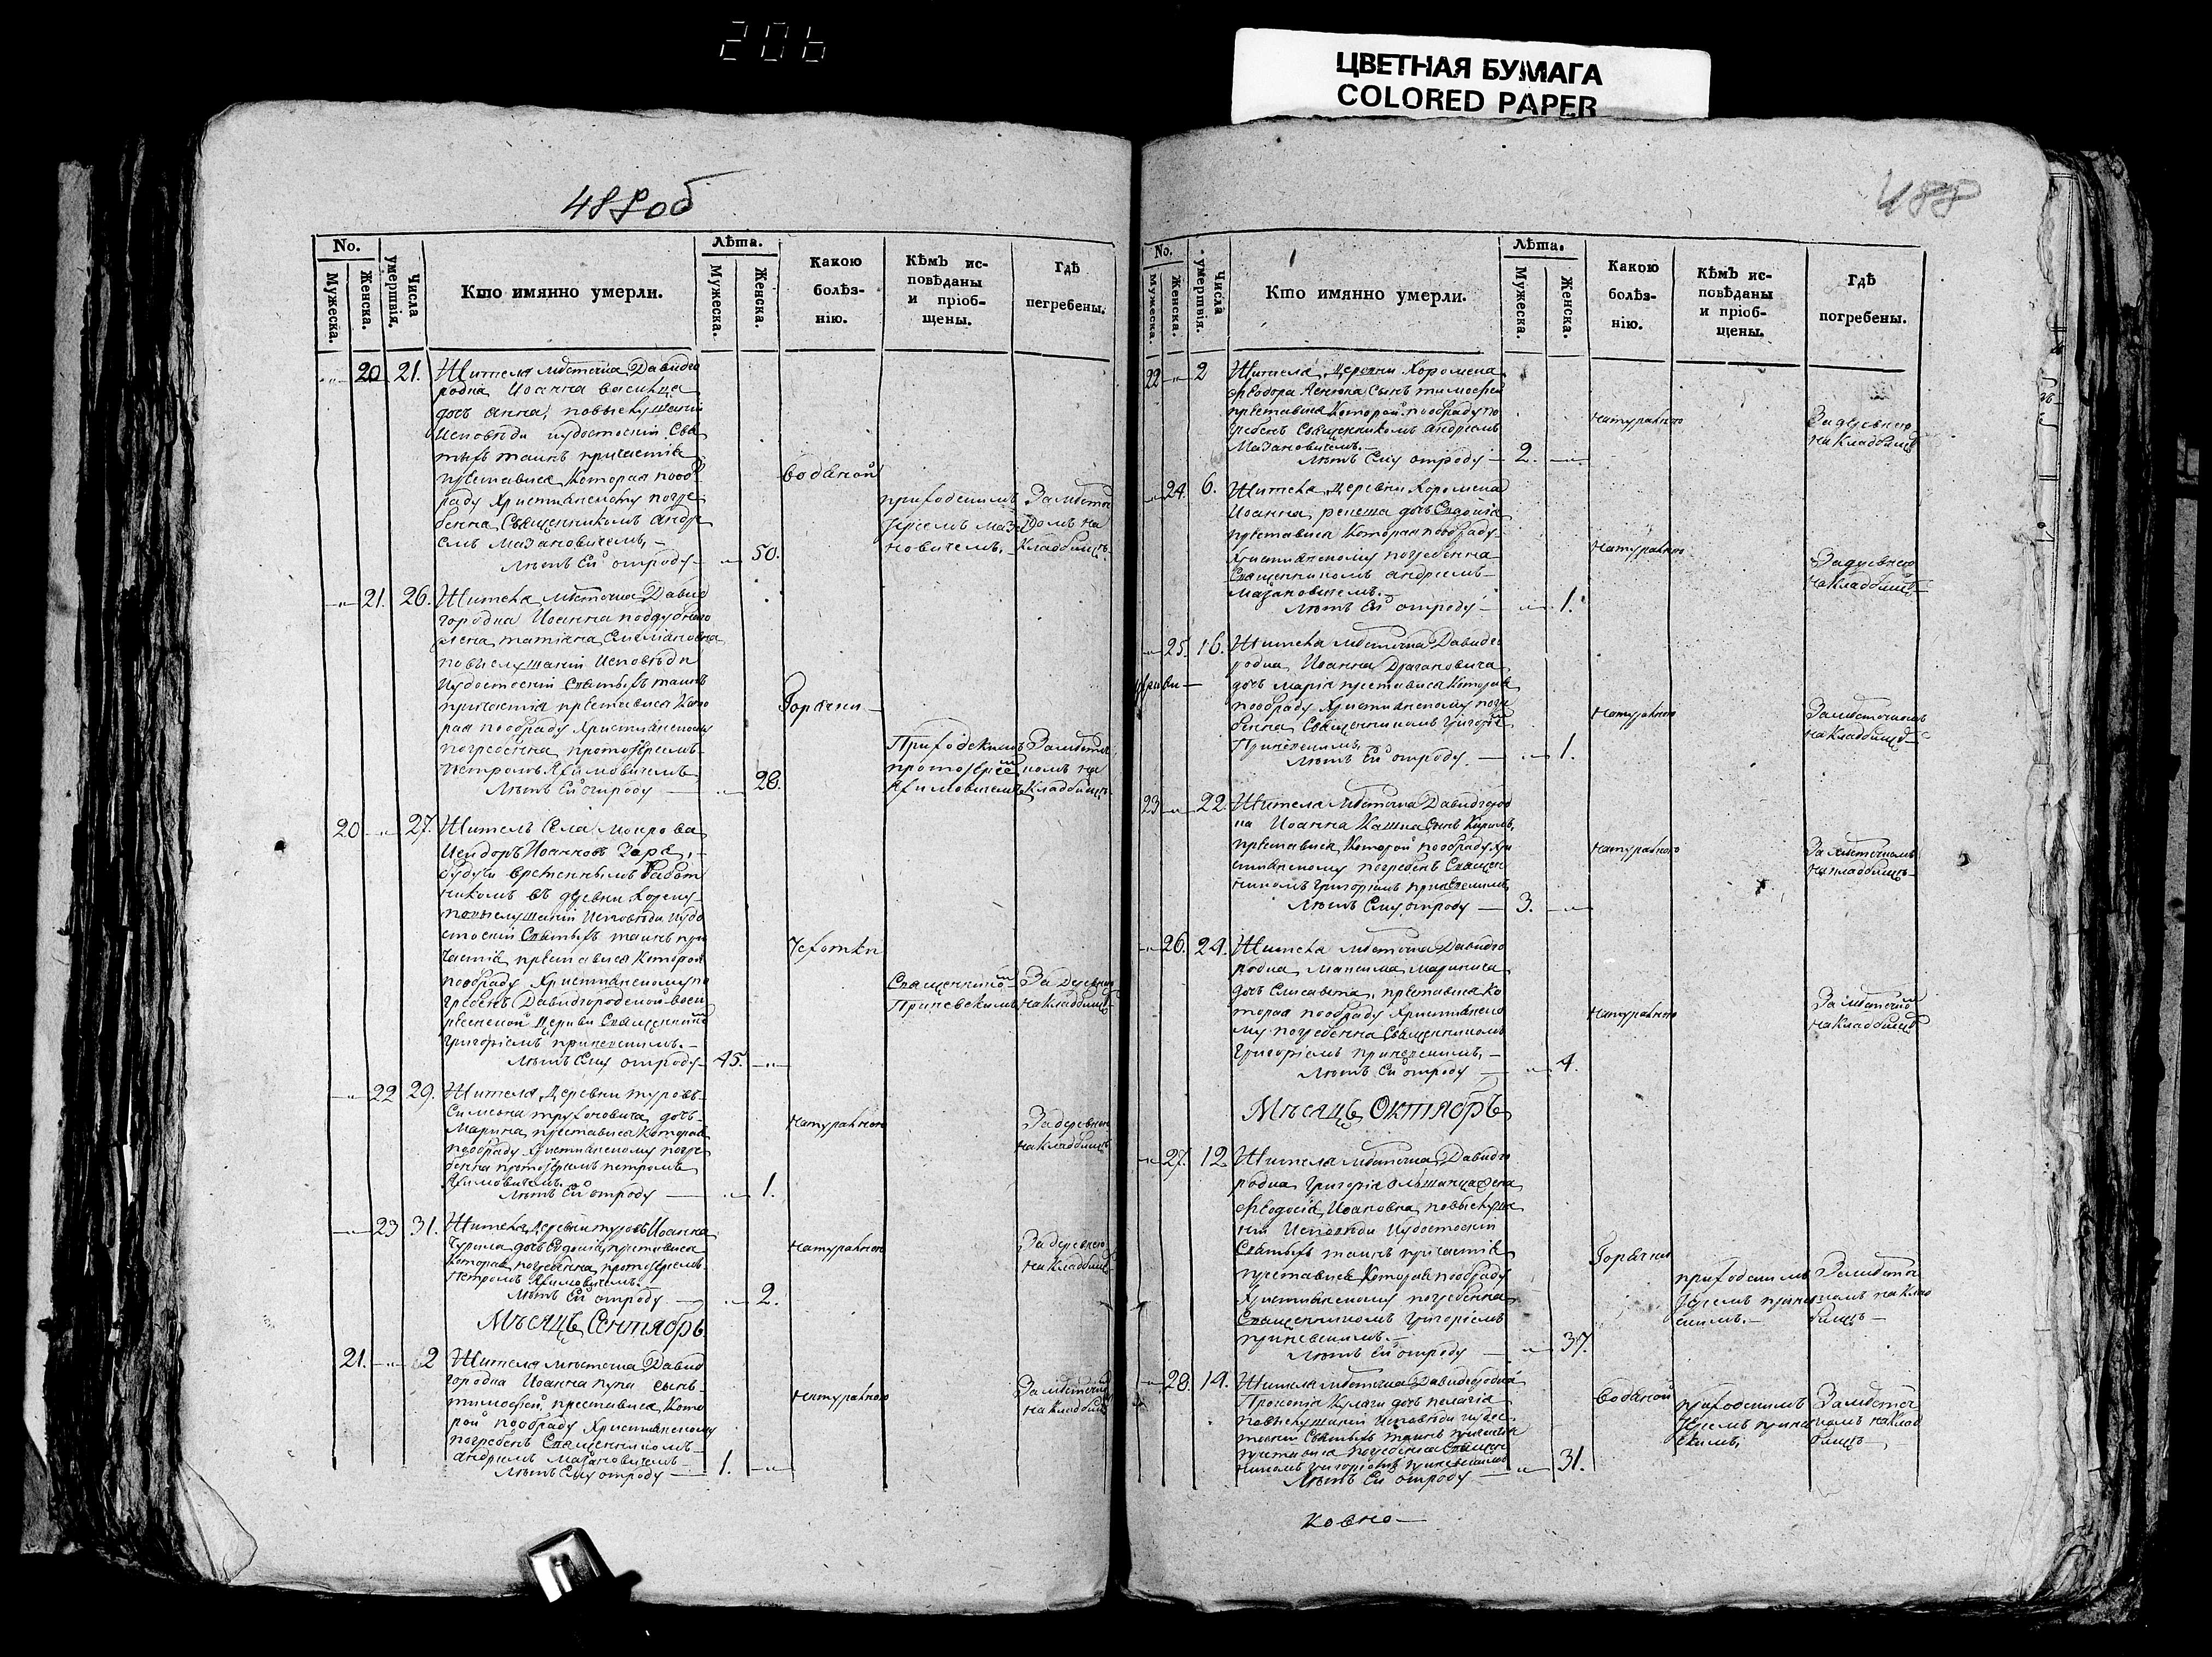 206
ЦВЕТНАЯ БУМАГА
COLORED PAPER
488об
No.
Мужеска.
Женска.
Числа умертвія.
Кто имянно умерли.
Лѣта.
Мужеска.
Женска.
Какою болѣз-
нію.
Кѣмъ ис-
повѣданы
и пріоб-
щены.
Гдѣ
погребены.
20 21. Жителя мѣстечка Давидго
родка Іоанна
дочь Анна, по выслушаніи
Исповѣди и удостоеніи Свя
тыхъ таинъ причастія
преставися которая по об
ряду Христіанскому погре
бенна Священникомъ Андре
емъ Мазановичемъ, —
Лѣтъ Ей отроду — 50.
водяной
приходскимъ
Іереемъ Маза
новичемъ.
За мѣсте
чкомъ на
кладбищѣ
21. 26. Жителя мѣстечка Давид
городка Іоанна
жена Татіана
по выслушаніи Исповѣди
и удостоеніи Святыхъ таинъ
причастія преставися кото
рая по обряду Христіанскому
погребенна протоіереемъ
Петромъ Якимовичемъ
Лѣтъ Ей отроду — 28.
Горячки
Приходскимъ
протоіреемъ
Якимовичемъ
За мѣстеч
комъ на
кладбищѣ
20 27. Житель Села Мокрова
Исидоръ Іоанновъ
будучи временнымъ работ
никомъ въ деревни
по выслушаніи Исповѣди и удо
стоеніи Святыхъ таинъ при
частія преставися которой
по обряду Христіанскому по
гребенъ Давидгородской воск
ресенской Церкви Священникомъ
Григоріемъ
Лѣтъ Ему отроду — 45.
Чехотки
Священникомъ
За деревнею
на кладбищѣ
22 29. Жителя Деревни Туровъ
Симеона Трухоновича дочь
Марина преставися которая
по обряду Христіанскому погре
бенна протоіереемъ Петромъ
Якимовичемъ.
Лѣтъ Ей отроду — 1.
натурально
За деревнею
на кладбищѣ
23 31. Жителя Деревни Туровъ Іоанна
дочь Евдокія преставися
которая погребенна протоіереемъ
Петромъ Якимовичемъ.
Лѣтъ Ей отроду — 2.
натурально
За деревнею
на кладбищѣ
Мѣсяцъ Сентябрь
21. 2 Жителя мѣстечка Давид
городка Іоанна Купи сынъ
Тимофей, преставися кото
рой по обряду Христіанскому
погребенъ Священникомъ
Андреемъ Мазановичемъ
Лѣтъ Ему отроду — 1.
натурально
За мѣстечкомъ
на кладбищѣ
488
No.
Мужеска.
Женска.
Числа умертвія.
Кто имянно умерли.
Лѣта.
Мужеска.
Женска.
Какою
болѣз-
нію.
Кѣмъ ис-
повѣданы
и пріоб-
щены.
Гдѣ
погребены.
22 2 Жителя Деревни Хоромска
Феодора сынъ Тимофей
преставися которой по обряду по
гребенъ Священникомъ Андреемъ
Мазановичемъ.
Лѣтъ Ему отроду — 2.
натурально
За деревнею
на кладбищѣ
24. 6. Жителя Деревни Хоромска
Іоанна дочь Евдокія
преставися которая по обряду
Христіанскому погребенна
Священникомъ Андреемъ
Мазановичемъ.
Лѣтъ Ей отроду — 1.
натурально
За деревнею
на кладбищѣ
25. 16. Жителя мѣстечка Давидго
родка Іоанна Драгановича
дочь Марія преставися которая
по обряду Христіанскому погре
бенна Священникомъ Григорі
Лѣтъ Ей отроду — 1.
натурально
За мѣстечкомъ
на кладбищѣ
23 22. Жителя мѣстечка Давидгород
ка Іоанна Кашка сынъ Кирилъ,
преставися которой по обряду Хри
стіанскому погребенъ Священ
никомъ Григоріемъ
Лѣтъ Ему отроду — 3.
натурально
За мѣстечкомъ
на кладбищѣ
26. 24. Жителя мѣстечка Давидго
родка Максима
дочь Елисавета, преставися ко
торая по обряду Христіанско
му погребенна Священникомъ
Григоріемъ
Лѣтъ Ей отроду — 4.
натурально
За мѣстечком
на кладбищѣ
Мѣсяцъ Октябрь
27. 12. Жителя мѣстечка Давидго
родка Григорія Ольшанца жена
Феодосія Іоановна по выслуша
ніи Исповѣди и удостоеніи
Святыхъ таинъ причастія
преставися которая по обряду
Христіанскому погребенна
Священникомъ Григоріемъ
Лѣтъ Ей отроду — 37.
Горячки
приходскимъ
За мѣстеч
комъ на клад
бищѣ
28. 14. Жителя мѣстечка Давидгородка
Прокопія Кулаги дочь Пелагія
по выслушаніи Исповѣди и удос
тоеніи Святыхъ таинъ причастія
преставися погребенна Священ
никомъ Григоріемъ
Лѣтъ Ей отроду — 31.
водяной
приходскимъ
За мѣстеч
комъ на клад
бищѣ